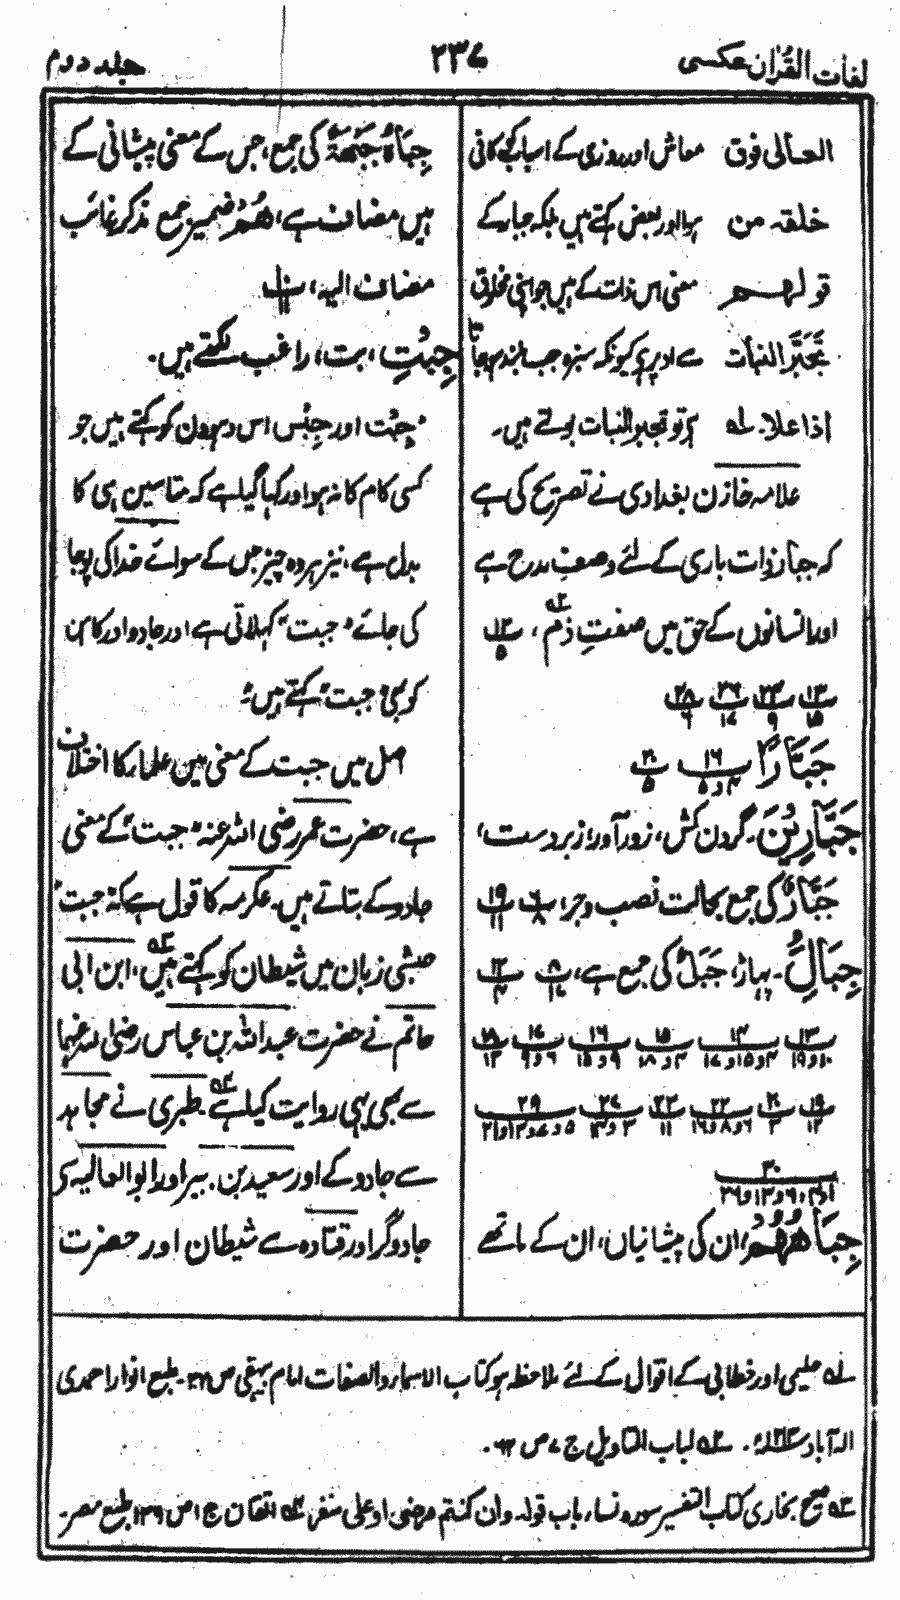 لغات القرآن عکسی
۲۳۷
جلد دوم
العالی فوق معاش اور روزی کے اسباب کا بانی
خلقہ من ہوا اور بعض کہتے ہیں بلکہ جبار کے
قولهم معنی اس ذات کے ہیں جو اپنی مخلوق
تجبّر النبات سے اوپر ہو کیونکہ سبزہ جب بلند ہو جاتا
اذا علا۔ لہ ہے تو تجبر النبات بولتے ہیں۔
علامہ خازن بغدادی نے تصریح کی ہے
کہ جبّار ذات باری کے لئے وصفِ مدح ہے
اور انسانوں کے حق میں صفتِ ذم ،
جَبَّارًا
جَبَّارِیْنَ۔ گردن کش، زور آور، زبردست،
جَبَّارٌ کی جمع بحالت نصب وجر،
جِبَالٌ ۔ پہاڑ، جَبَلٌ کی جمع ہے،
جِبَاهُهُمْ، ان کی پیشانیاں، ان کے ماتھے
جِبَاہٌ جَبْهَةٌ کی جمع، جس کے معنی پیشانی کے
ہیں مضاف ہے، هُمْ ضمیر جمع مذکر غائب
مضاف الیہ،
جِبْتِ ، بت، راغب لکھتے ہیں۔
جِبْت اور جِبْس اس دہودن کو کہتے ہیں جو
کسی کام کا نہ ہو اور کہا گیا ہے کہ تا سین ہی کا
بدل ہے، نیز ہر وہ چیز جس کے سوائے خدا کی پوجا
کی جائے "جبت" کہلاتی ہے اور جادو اور کاہن
کو بھی "جبت" کہتے ہیں۔
اصل میں جبت کے معنی میں علمار کا اختلاف
ہے، حضرت عمر رضی اللہ عنہ "جبت" کے معنی
جادو کے بتاتے ہیں۔ عکرمہ کا قول ہے کہ جبت
حبشی زبان میں شیطان کو کہتے ہیں، ابن ابی
حاتم نے حضرت عبد اللہ بن عباس رضی اللہ عنہما
سے بھی یہی روایت کیا ہے۔ طبری نے مجاہد
سے جادو کے اور سعید بن جبیر اور ابو العالیہ کے
جادوگر اور قتادہ سے شیطان اور حضرت
لہ حلیمی اور خطابی کے اقوال کے لئے ملاحظہ ہو کتاب الاسمار والصفات امام بیہقی ص طبع انوار احمدی
الہ آباد لباب التاویل ج ۷ ص
صحیح بخاری کتاب التفسیر سورہ نساء باب قولہ وان کنتم مرضی او علی سفر اتقان ج ۱ ص ۱۳۶ طبع مصر۔